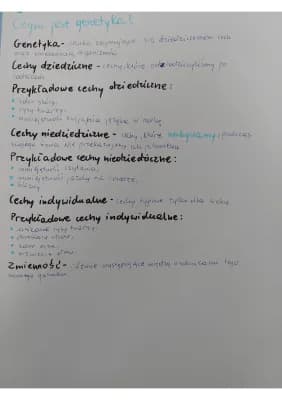 Czym jest genetyka?
Genetyka- nauka zajmująca się dziedziczeniem cech
oraz zmiennością organizmów
Cechy dziedziczne- cechy, które odziedziczyliśmy po
rodzicach
Przykładowe cechy dziedziczne:
kolor skóry,
rysy twarzy,
umiejętność zwijania języka w rurkę
Cechy niedziedziczne- cechy, które nabywamy podczas
Przykładowe cechy niedziedziczne:
umiejętność czytania,
umiejętność jazdy na rowerze,
blizny
Cechy indywidualne- cechy typowe tylko dla
Przykładowe cechy indywidualne:
rysy twarzy,
Zmienność- różnice występujące między osobnikami tego
samego gatunku